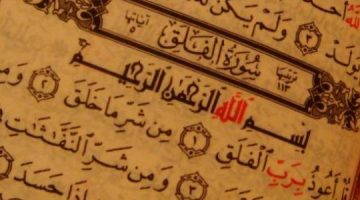 ـولَدْ ٣ وَلَمْ يَكُن
ترتيبها ١١٣ سُورَةُ الْفَلَقِ آياتها ٥
بِسْمِ اللَّهِ الرَّحْمَٰنِ الرَّحِيمِ
أَعُوذُ بِرَبِّ الْفَلَقِ ١ مِن شَرِّ مَا خَلَقَ ٢ وَمِن
٣ وَمِن شَرِّ النَّفَّاثَاتِ
ذَا حَسَدَ